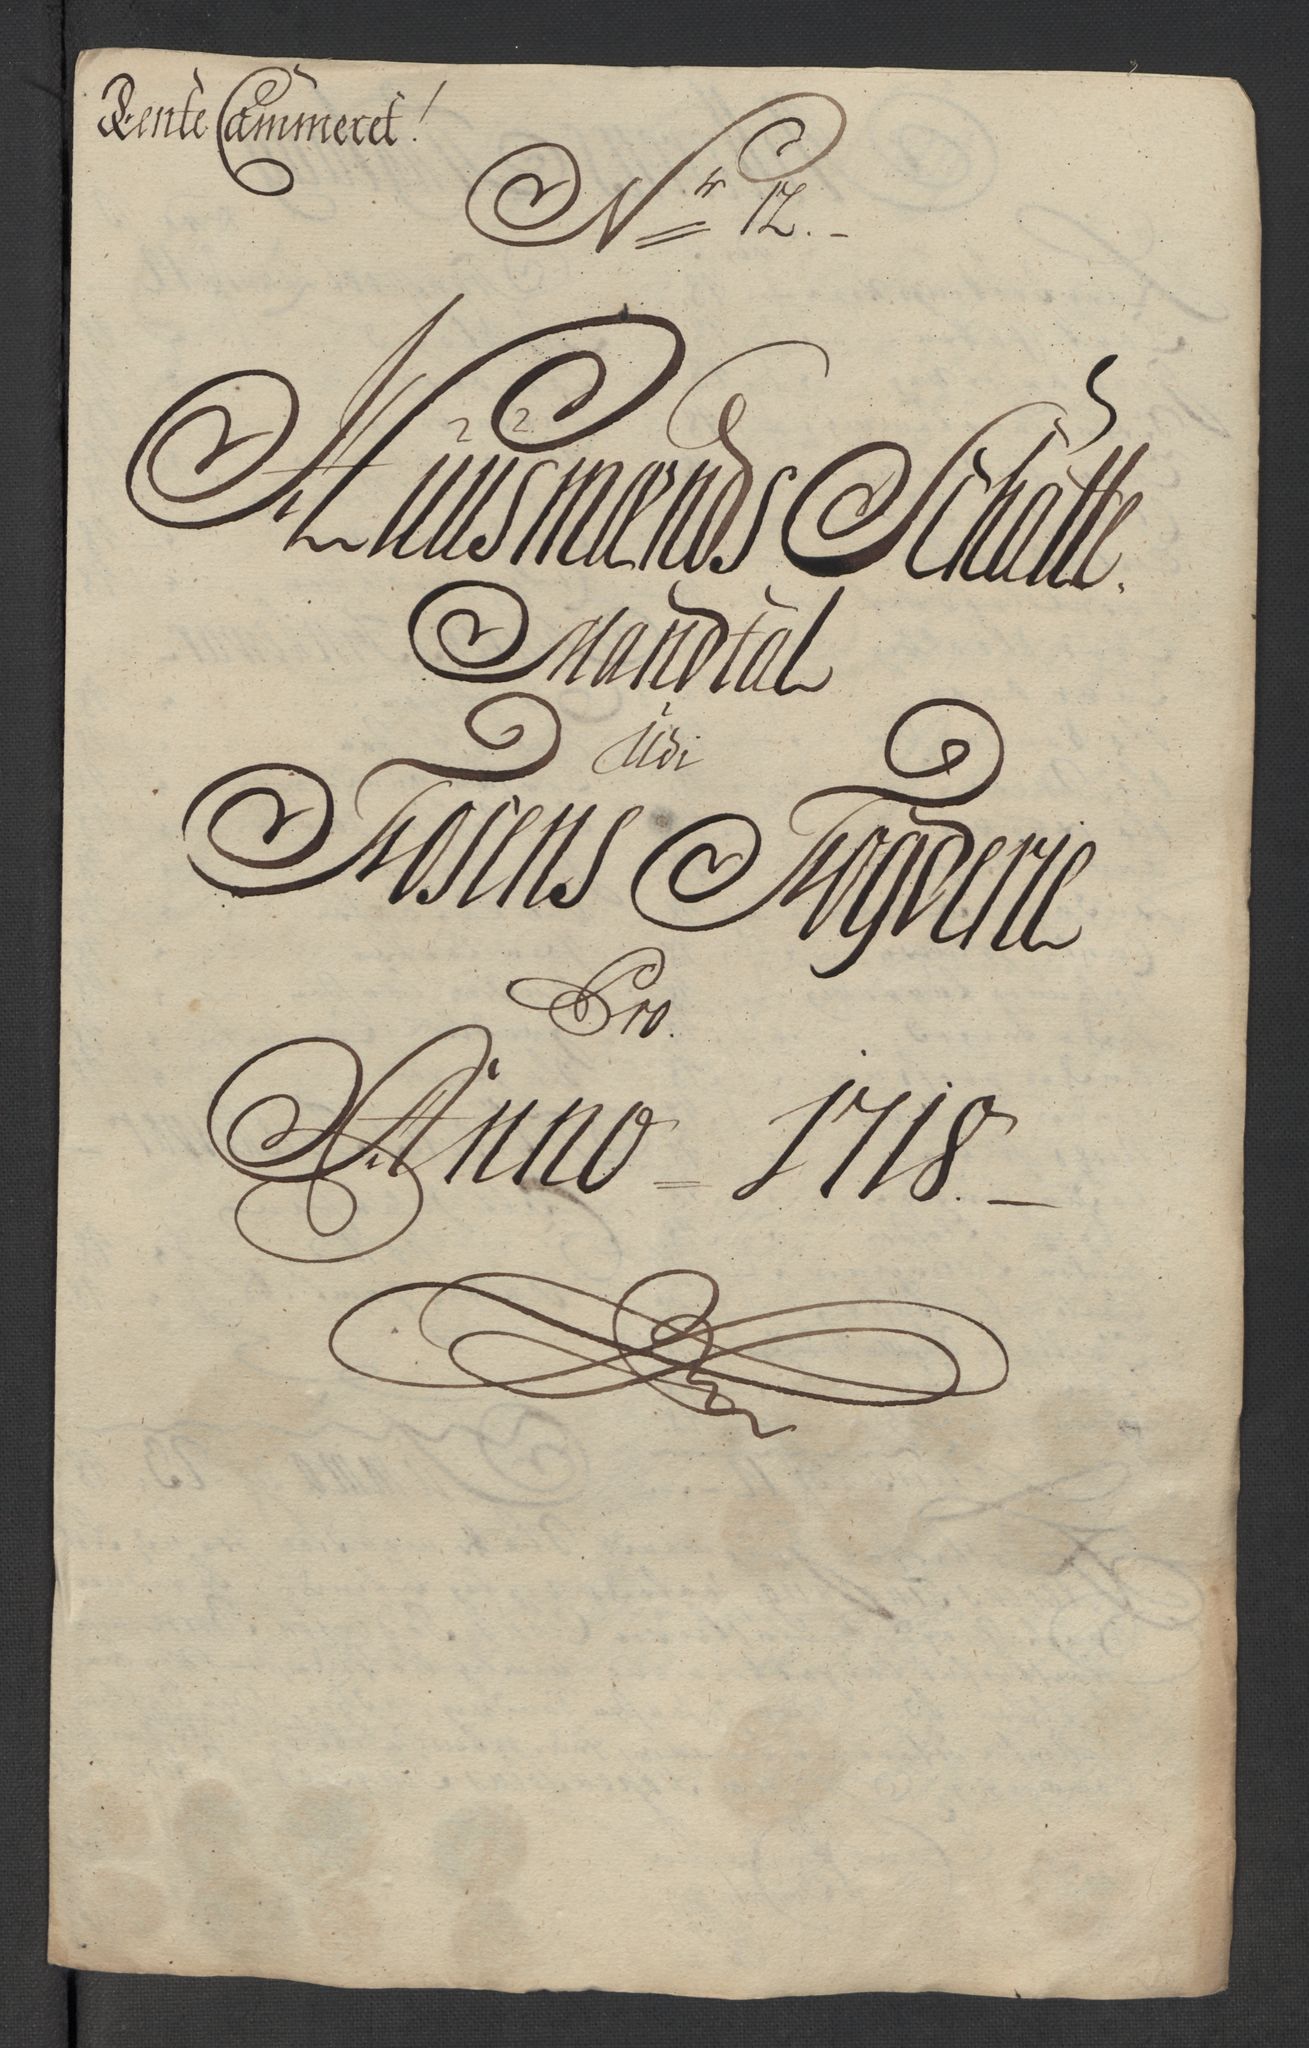 Rente Cammeret!
Nr 12.
Huusmænds Schatte
Mandtal
Udi
Fosens Fogderie
Pro.
Anno 1718.